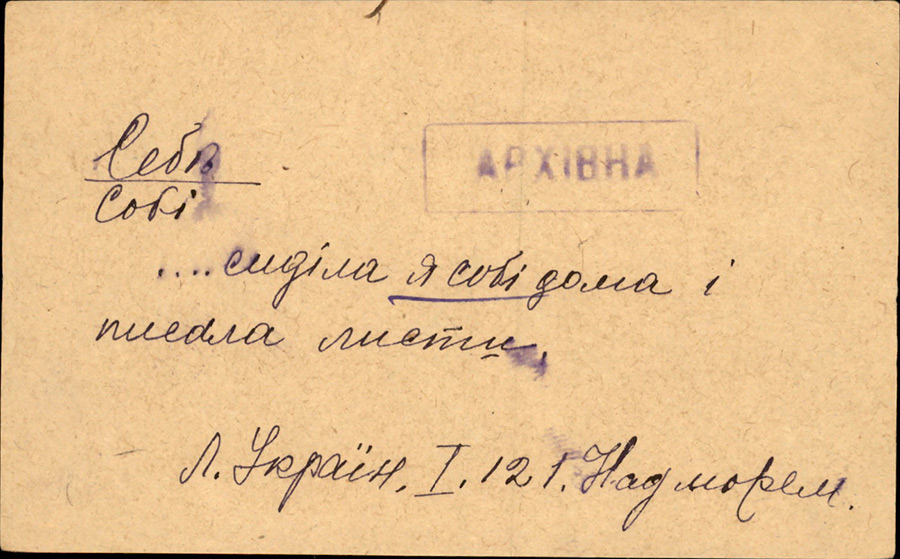 Себе
АРХІВНА
Собі
....сиділа я собі дома і
писала листи.
Л. Україн. І. 121. Над морем.